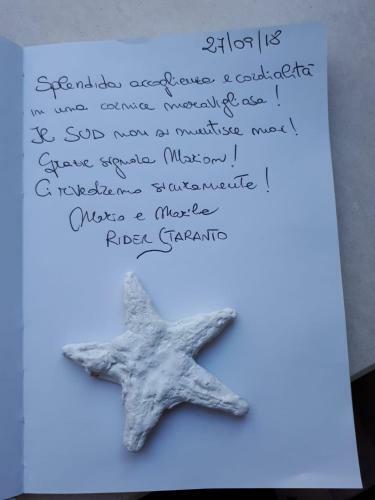 27/09/18
Splendida accoglienza e cordialità
in una cornice meravigliosa!
Il SUD non si smentisce mai!
Grazie signola Marion!
Ci rivedremo sicuramente!
Mario e
RIDER TARANTO